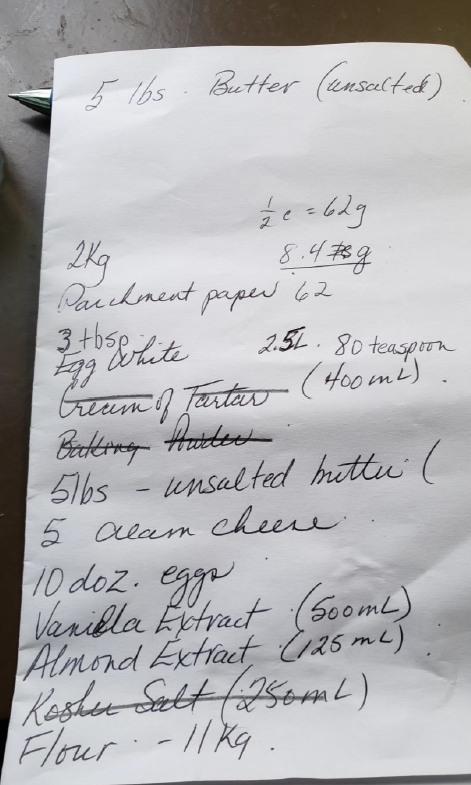 5 lbs. Butter (unsalted)
1/2 c = 62g
2Kg 8.4 g
Parchment paper 62
3 tbsp
Egg White 2.5L. 80 teaspoon
Cream of Tartar (400mL).
Baking Powder
5lbs - unsalted butter (
5 cream cheese
10 doz. eggs
Vanilla Extract (500mL)
Almond Extract (125mL).
Kosher Salt (250mL)
Flour - 11Kg.